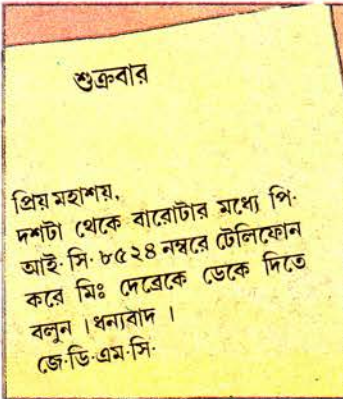 শুক্রবার
প্রিয় মহাশয়,
দশটা থেকে বারোটার মধ্যে পি·
আই· সি· ৮৫২৪ নম্বরে টেলিফোন
করে মিঃ দেব্রেকে ডেকে দিতে
বলুন । ধন্যবাদ ।
জে·ডি·এম·সি·